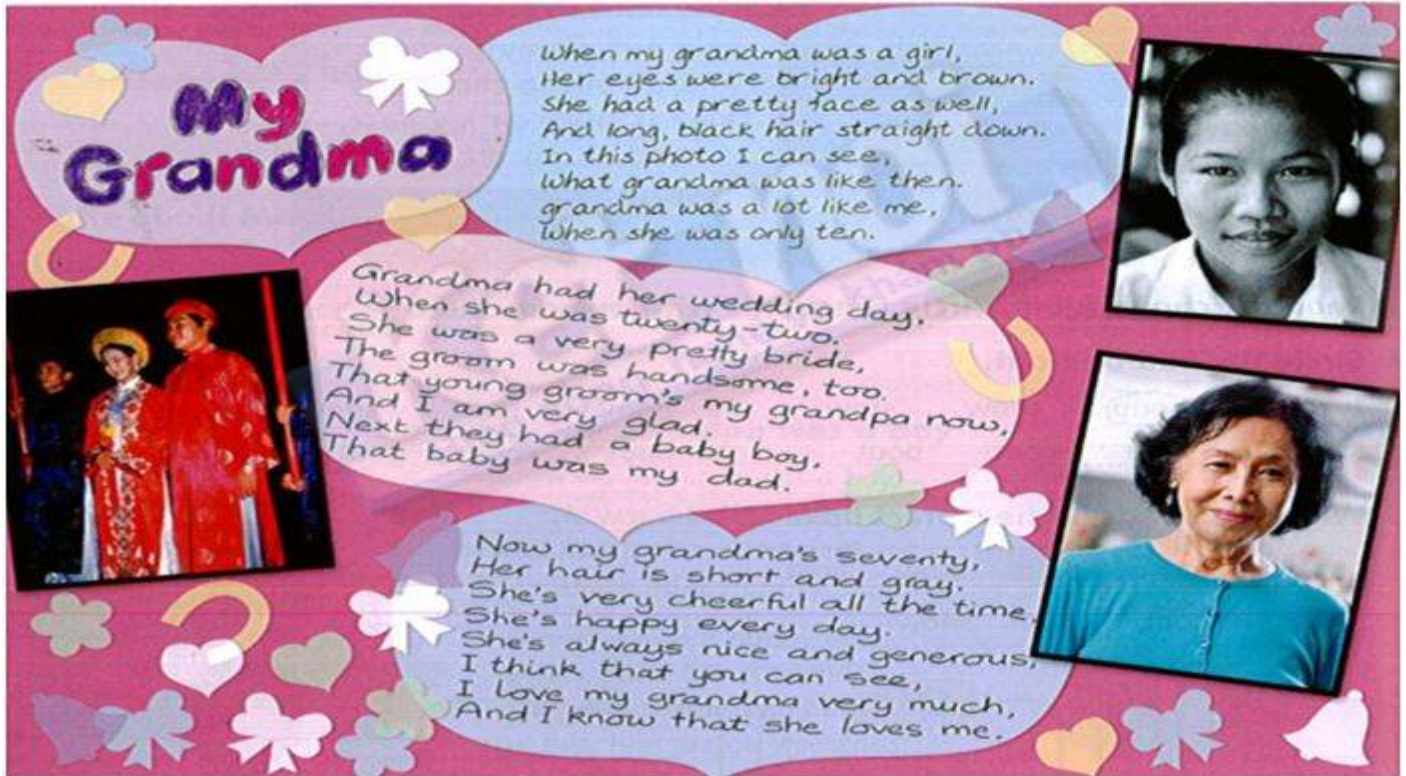 My
Grandma
When my grandma was a girl,
Her eyes were bright and brown.
She had a pretty face as well,
And long, black hair straight down.
In this photo I can see,
What grandma was like then.
grandma was a lot like me,
When she was only ten.
Grandma had her wedding day,
When she was twenty-two.
She was a very pretty bride,
The groom was handsome, too.
That young groom's my grandpa now,
And I am very glad.
Next they had a baby boy,
That baby was my dad.
Now my grandma's seventy,
Her hair is short and gray.
She's very cheerful all the time,
She's happy every day.
She's always nice and generous,
I think that you can see,
I love my grandma very much,
And I know that she loves me.